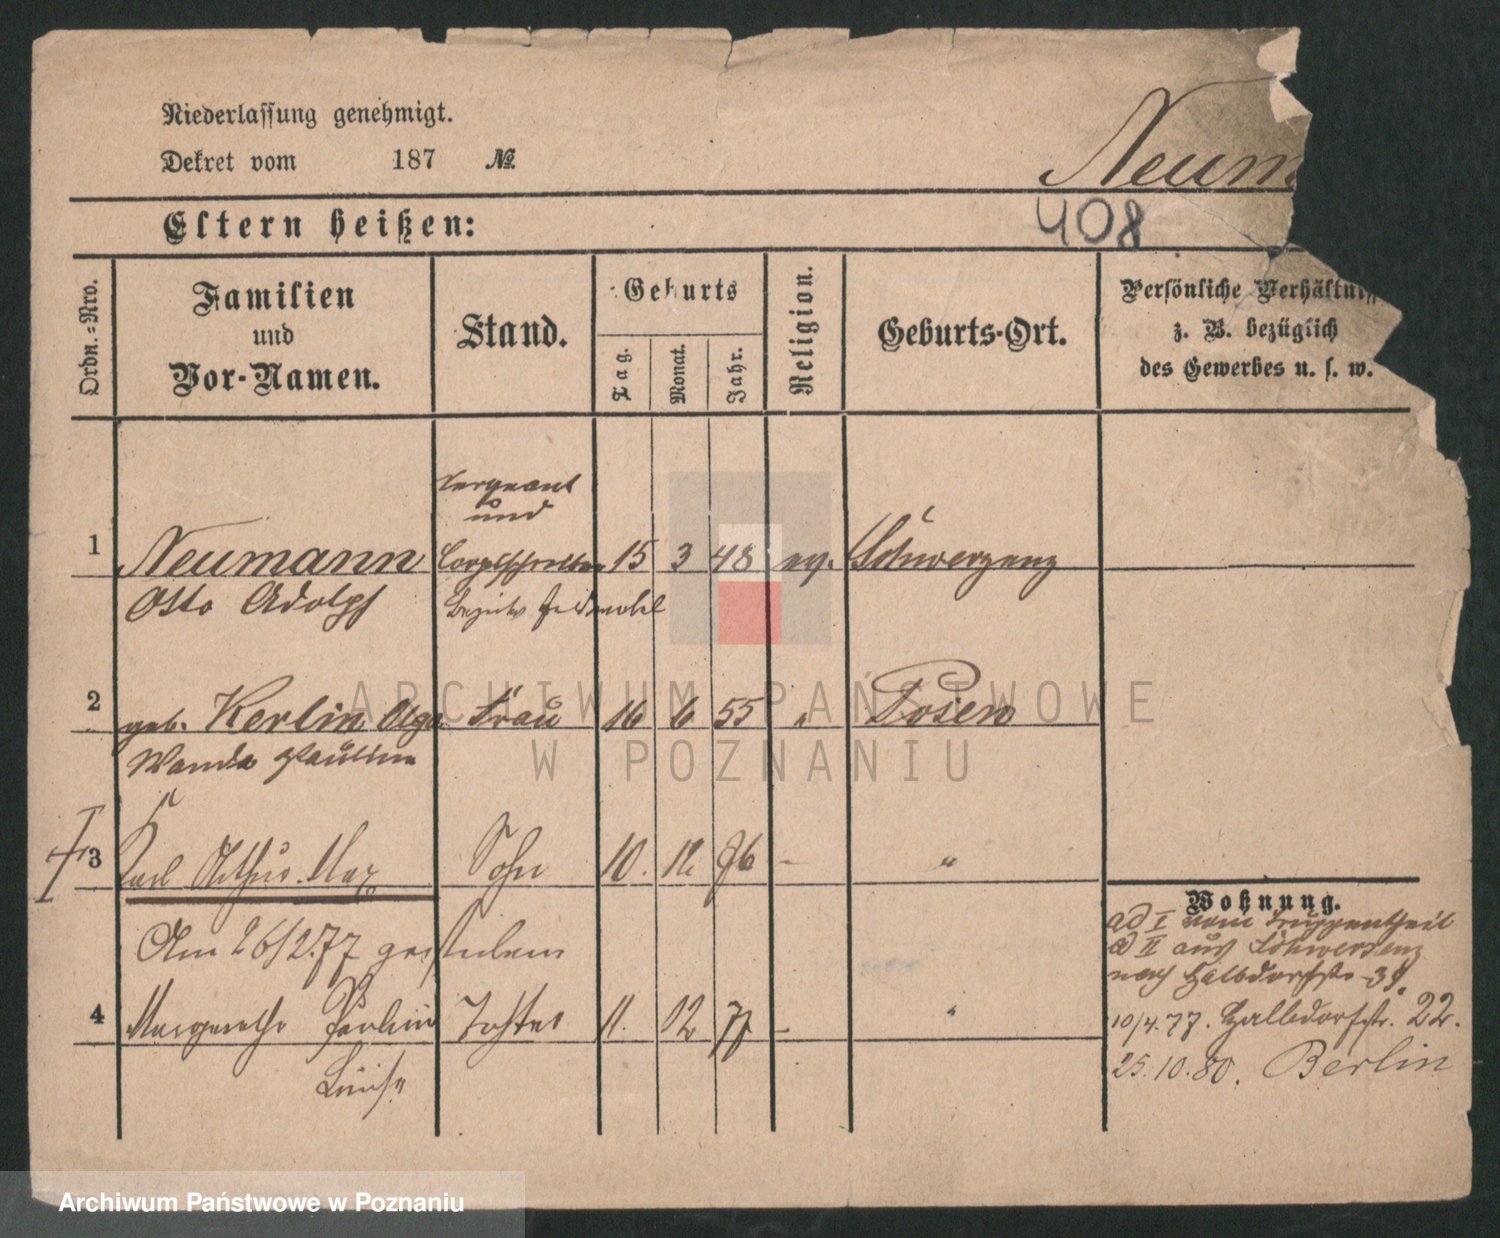 Niederlassung genehmigt.
Dekret vom 187 №
Neum
408
Eltern heißen:
Ordn.=Nro.
Familien
und
Vor-Namen.
Stand.
Geburts
Tag.
Monat.
Jahr.
Religion.
Geburts-Ort.
Persönliche Verhältniss
z. B. bezüglich
des Gewerbes u. s. w.
Sergeant
und
1 Neumann 15 3 48 ev. Schwersenz
Otto Adolph Bezirks Feldwebel
2 geb. Kerlin Olga Frau 16 6 55 " Posen
Wanda Pauline
3 Karl Arthur Max Sohn 10. 12. 76 – "
Am 26/2.77 gestorben
4 Margarethe Tochter 11. 12 77 – "
Luise
Wohnung.
ad I vom Truppentheil
ad II aus Schwersenz
nach Halbdorfstr.
10/4.77. Halbdorfstr. 22.
25.10.80. Berlin
ARCHIWUM PAŃSTWOWE
W POZNANIU
Archiwum Państwowe w Poznaniu